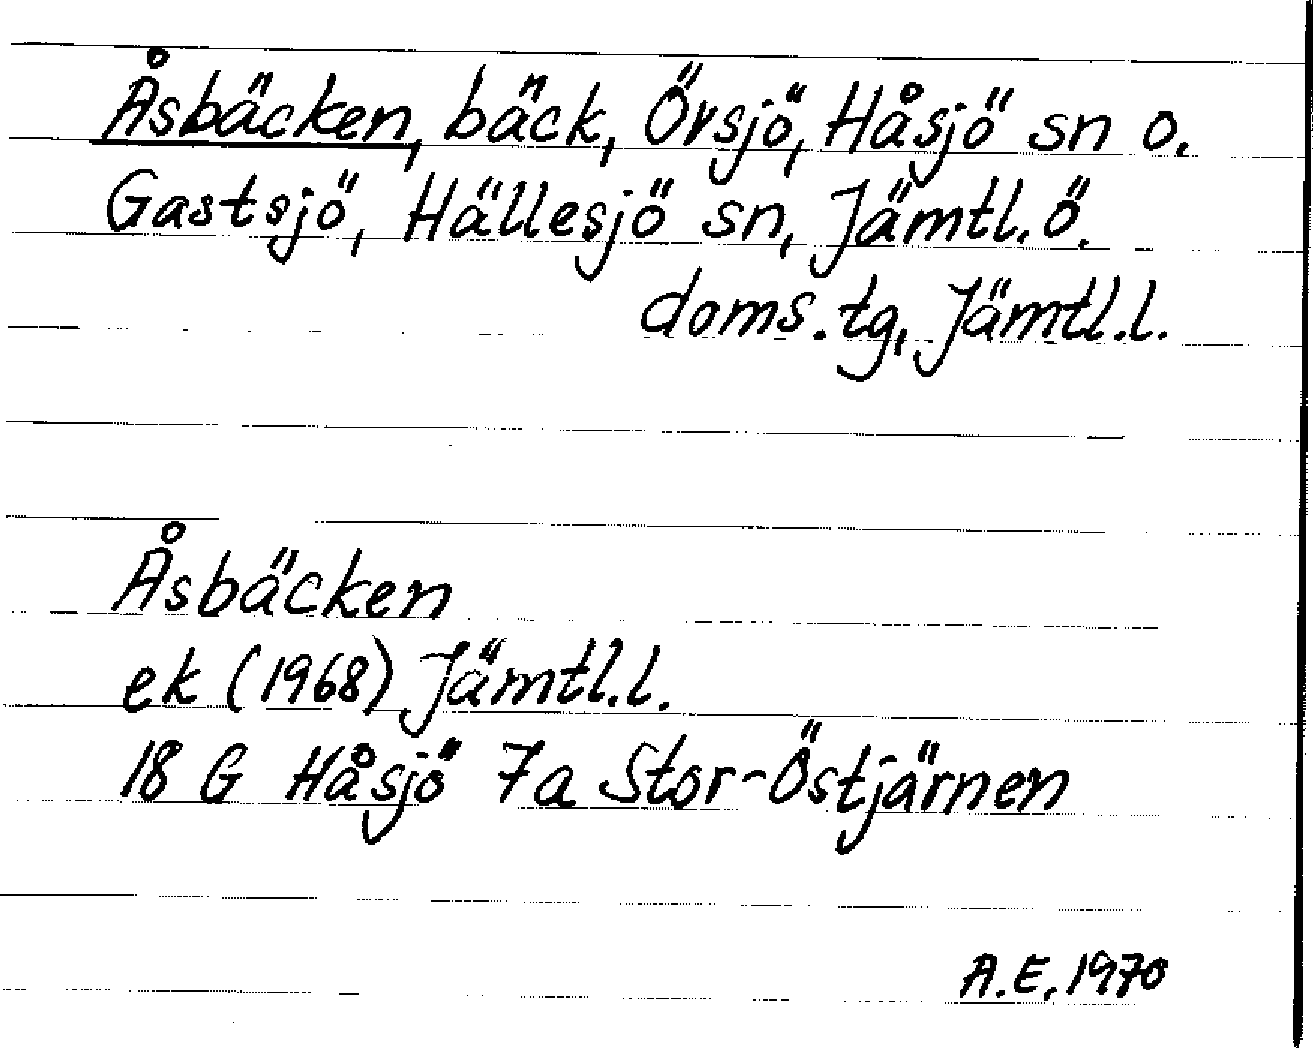 Åsbäcken, bäck, Örsjö, Håsjö sn o.
Gastsjö, Hällesjö sn, Jämtl.ö.
doms.tg, Jämtl.l.
Åsbäcken
ek (1968) Jämtl.l.
18 G Håsjö 7a Stor-Östjärnen
A.E. 1970